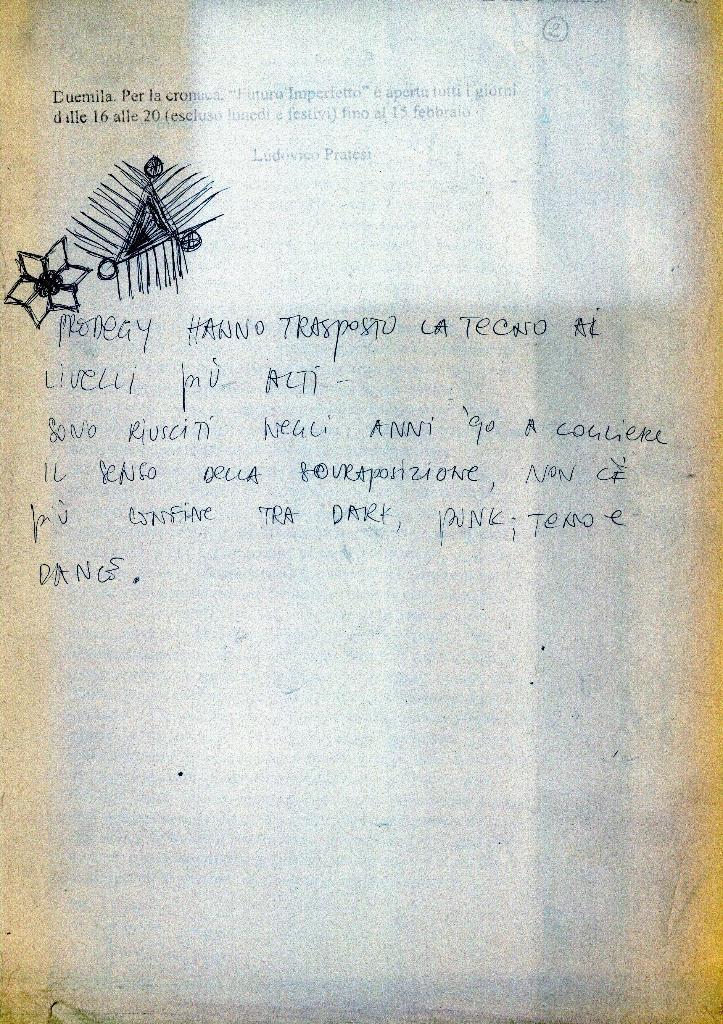 2
Duemila. Per la cronaca. "Futuro Imperfetto" è aperta tutti i giorni
dalle 16 alle 20 (escluso lunedì e festivi) fino al 15 febbraio
Ludovico Pratesi
PRODEGY HANNO TRASPOSTO LA TECNO AI
LIVELLI PIÙ ALTI -
SONO RIUSCITI NEGLI ANNI '90 A COGLIERE
IL SENSO DELLA SOVRAPOSIZIONE, NON C'È
PIÙ CONFINE TRA DARK, PUNK, TECNO E
DANCE.